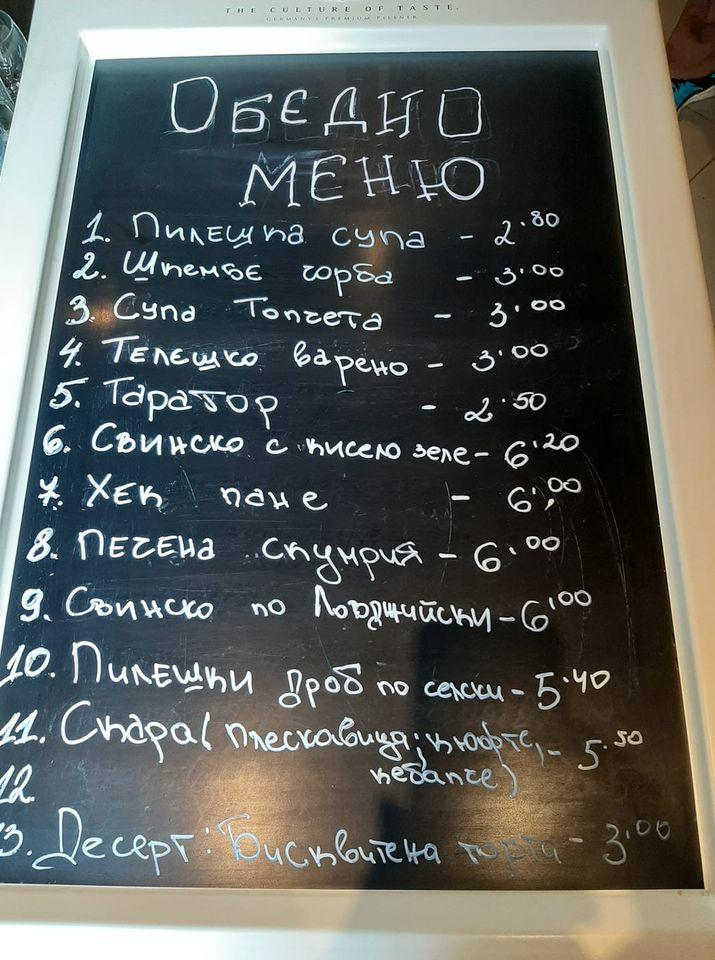 THE CULTURE OF TASTE.
GERMANY'S PREMIUM PILSNER
ОБЕДНО
МЕНЮ
1. Пилешка супа - 2.80
2. Шкембе чорба - 3.00
3. Супа Топчета - 3.00
4. Телешко варено - 3.00
5. Таратор - 2.50
6. Свинско с кисело зеле - 6.20
7. Хек пане - 6.00
8. Печена скумрия - 6.00
9. Свинско по Ловджийски - 6.00
10. Пилешки дроб по селски - 5.40
11. Скара( плескавица; кюфте, - 5.50
12. кебапче)
3. Десерт: Бисквитена торта - 3.00